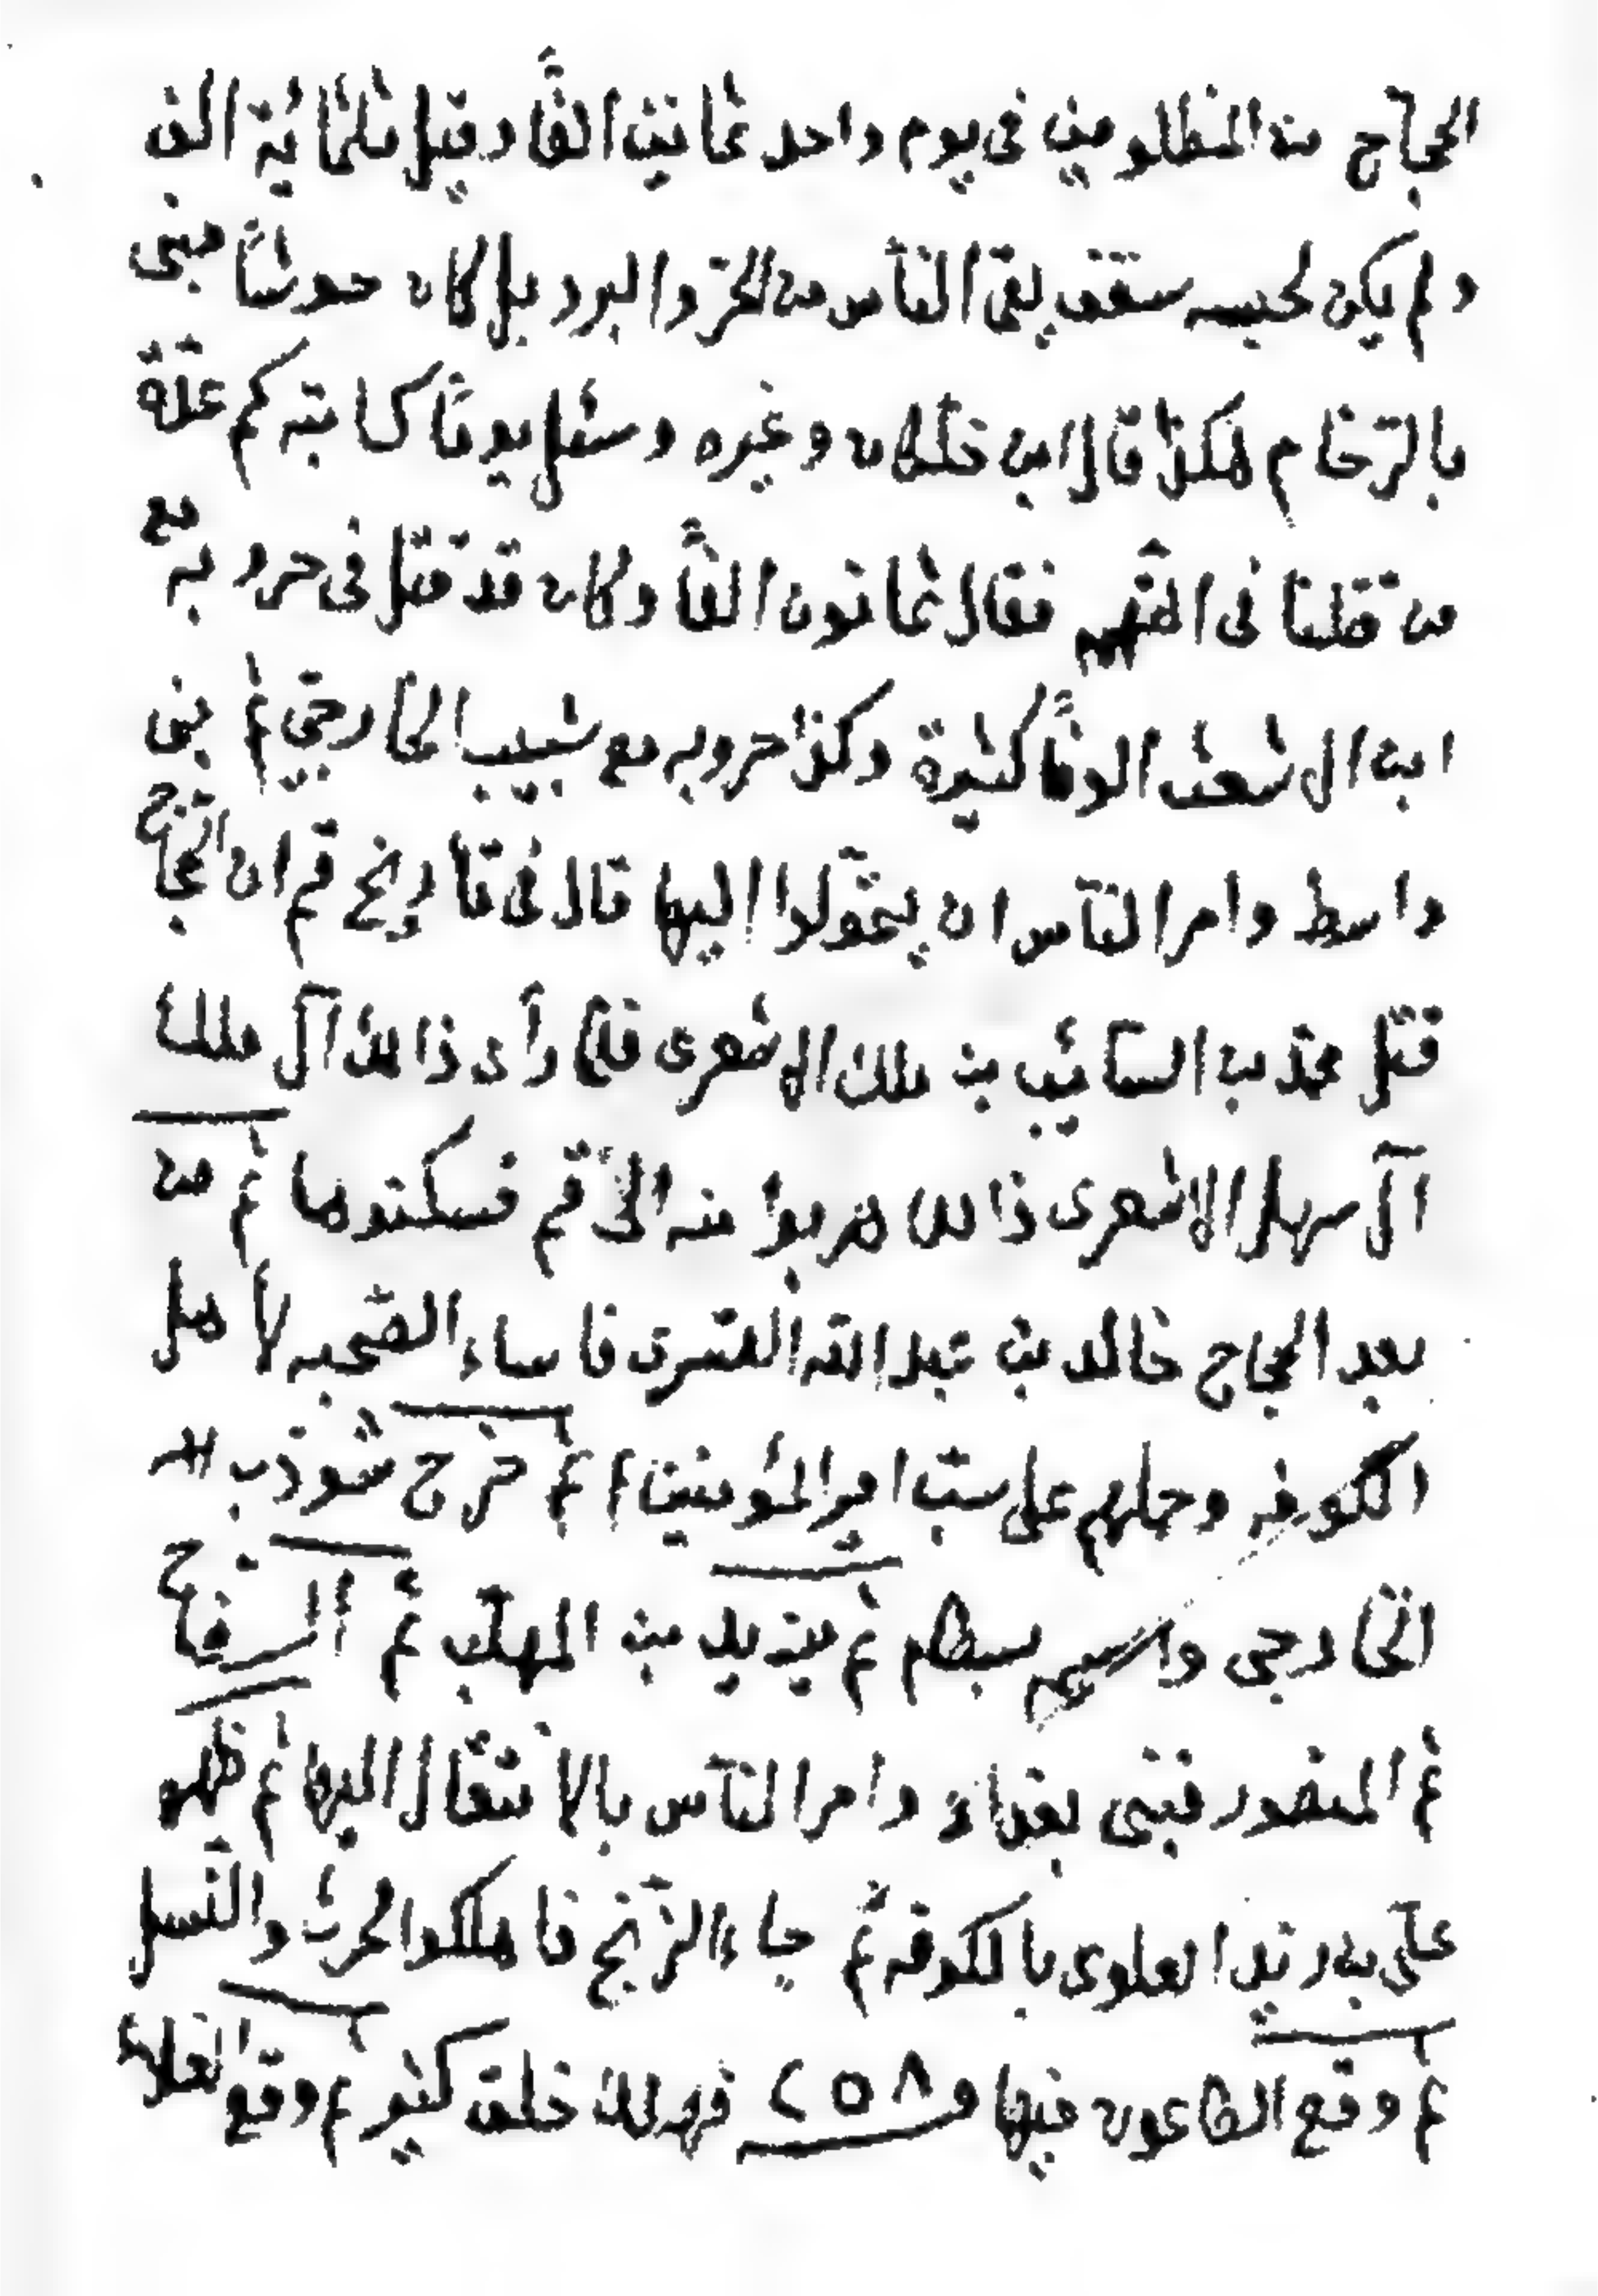 الحجاج من المظلومين فى يوم واحد ثمانين الفًا وقيل ثلثمائة الف
ولم يكن لحبسه سقف يقى الناس من الحرّ والبرد بل كان حوشًا مبنى
بالرّخام هكذا قال ابن خلكان وغيره وسئل يومًا كاتبه كم عدّة
من قتلنا فى التّهم فقال ثمانون الفًا وكان قد قتل فى حروبه مع
ابن الاشعث الوفًا كثيرة وكذا حروبه مع شبيب الخارجىّ ثم بنى
واسط وامر النّاس ان يتحّولوا اليها قال فى تاريخ قم ان الحجّاج
قتل محمّد بن السائيب بن ملك الاشعرى فلمّا رأى ذالك آل ملك
آل سهل الاشعرى ذالك هربوا منه الى قم فسكنوها ثم من
بعد الحجاج خالد بن عبد الله القسرى فاساء الصّحبه لأهل
الكوفه وحملهم على سبّ امير المؤمنين ع ثم خرج شوذب
الخارجى واسمه بسطام ثم يزيد بن المهلّب ثم السفاح
ثم المنصور فبنى بغداد وامر النّاس بالانتقال اليها ثم ظهر
علىّ بن زيد العلوى بالكوفه ثم جاء الزّنج فاهلكوا الحرث والنّسل
ثم وقع الطاعون فيها و ٢٥٨ فهلك خلق كثير ثم وقع الغلاء